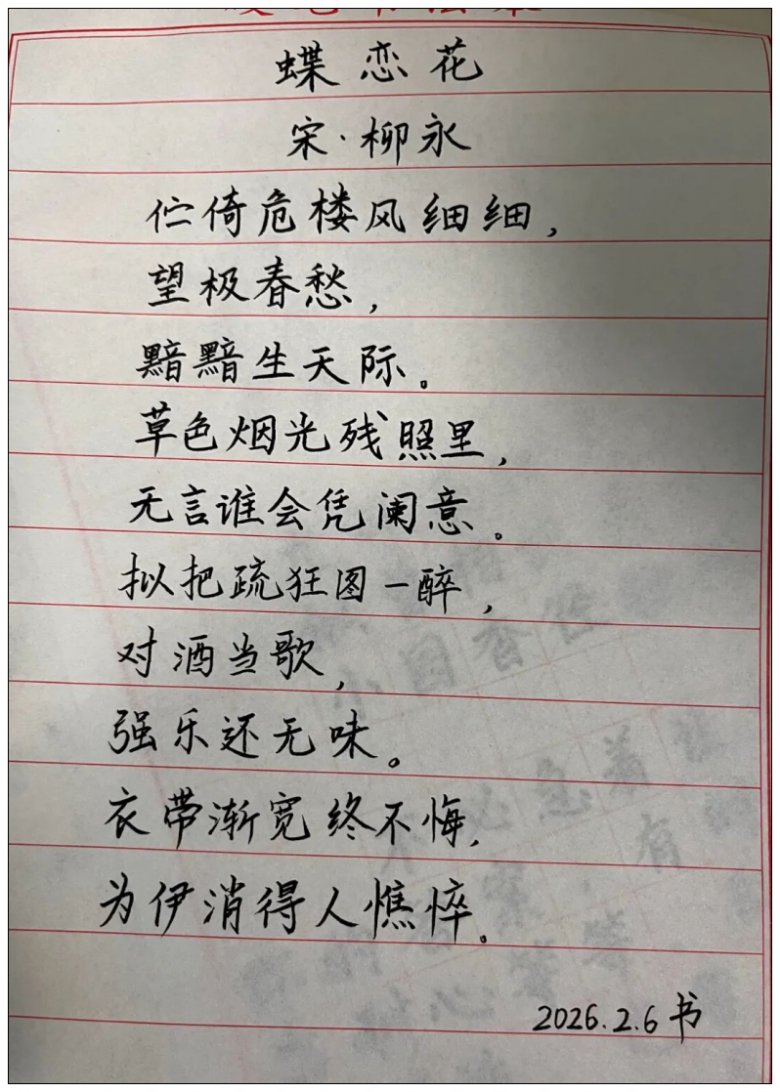 蝶恋花
宋·柳永
伫倚危楼风细细，
望极春愁，
黯黯生天际。
草色烟光残照里，
无言谁会凭阑意。
拟把疏狂图一醉，
对酒当歌，
强乐还无味。
衣带渐宽终不悔，
为伊消得人憔悴。
2026.2.6书